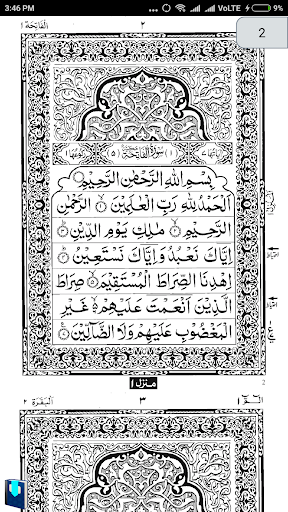 3:46 PM ... VoLTE 9%
2
الفاتحة ١
٢
(١) سورة الفاتحة (٥)
بسم الله الرحمن الرحيم
الحمد لله رب العلمين ۝ الرحمن
الرحيم ۝ ملك يوم الدين ۝
اياك نعبد واياك نستعين ۝
اهدنا الصراط المستقيم ۝ صراط
الذين انعمت عليهم غير
المغضوب عليهم ولا الضالين ۝
منزل ١
2
البقرة ٢
٣
الم ١